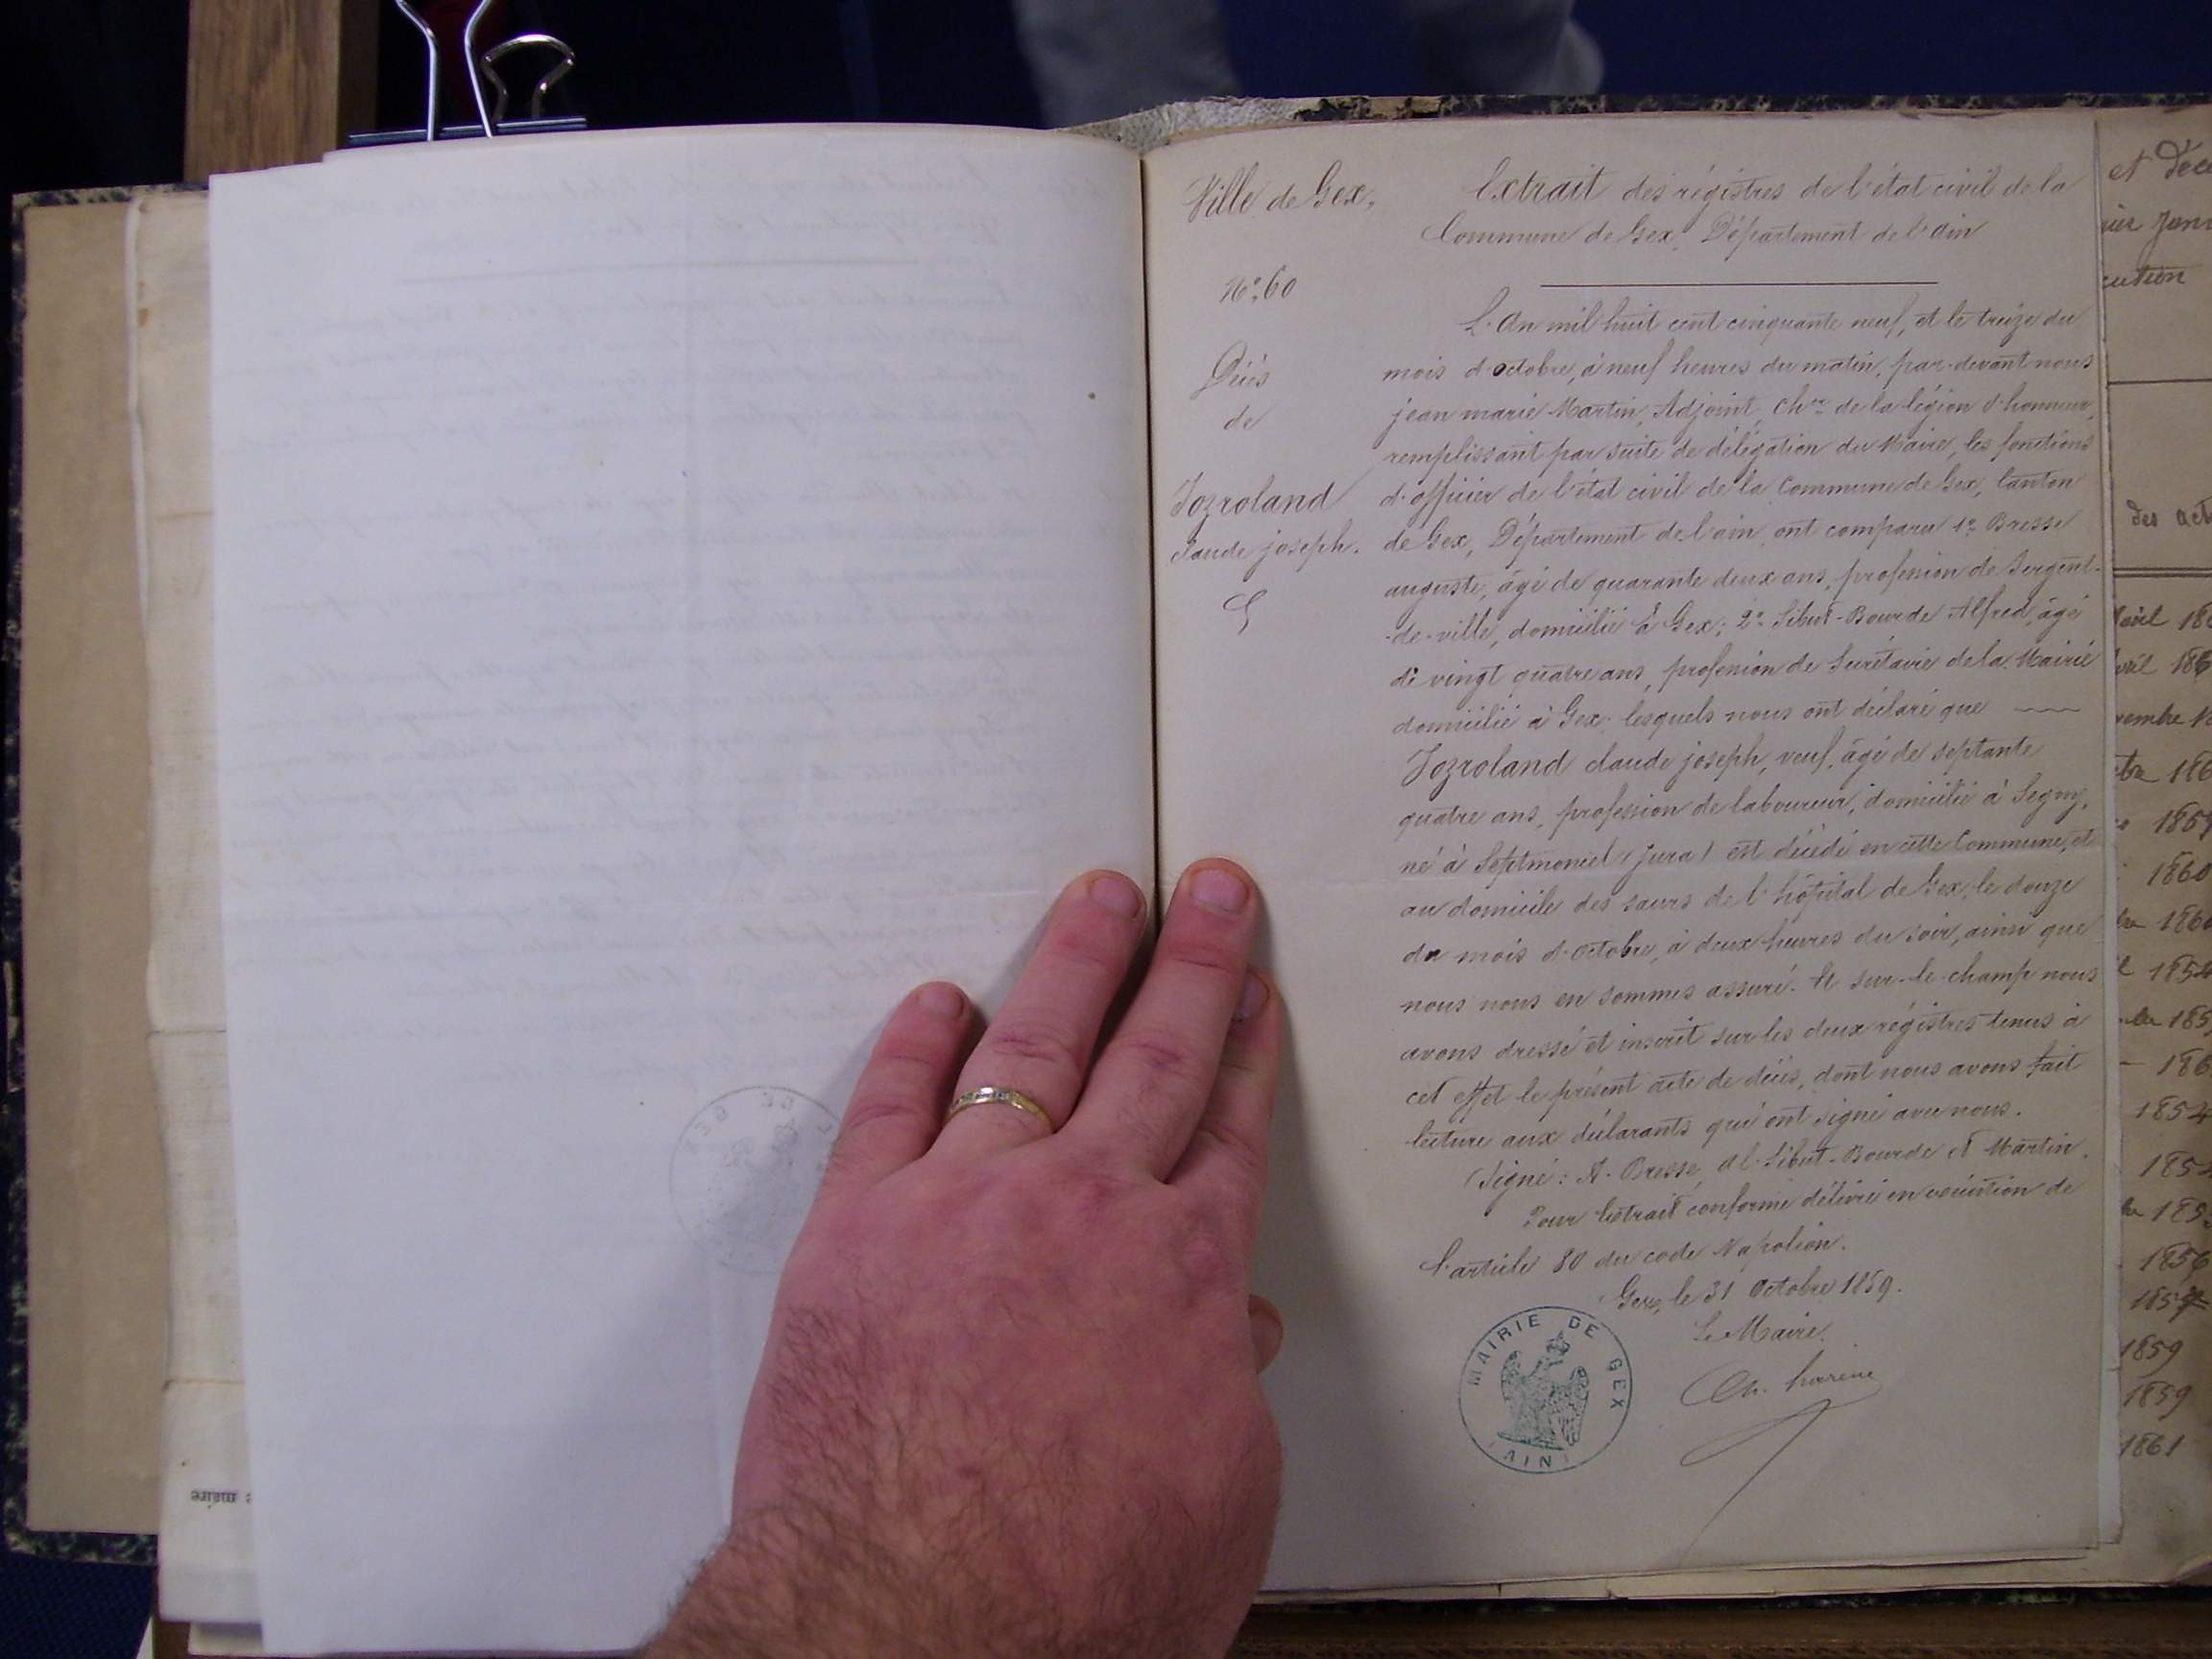 Ville de Gex.
Extrait des régistres de l'état civil de la
Commune de Gex, Département de l'ain
N.º 60
L'An mil huit cent cinquante neuf, et le treize du
mois d'octobre, à neuf heures du matin, par-devant nous
jean marie Martin, Adjoint, Ch.er de la légion d'honneur,
remplissant par suite de délégation du Maire, les fonctions
d'officier de l'état civil de la Commune de Gex, Canton
de Gex, Département de l'ain, ont comparu 1.º Bresse
auguste, âgé de quarante deux ans, profession de Sergent-
-de-ville, domicilié à Gex; 2.º Sibut-Bourde Alfred, âgé
de vingt quatre ans, profession de Secrétaire de la Mairie
domicilié à Gex; lesquels nous ont déclaré que
Jozroland claude joseph, veuf, âgé de septante
quatre ans, profession de laboureur, domicilié à Segny,
né à Septmoncel (Jura) est décédé en cette Commune, et
au domicile des sœurs de l'hôpital de Gex, le douze
du mois d'octobre, à deux heures du soir, ainsi que
nous nous en sommes assuré. Et sur-le-champ nous
avons dressé et inscrit sur les deux régistres tenus à
cet effet le présent acte de décès, dont nous avons fait
lecture aux déclarants qui ont signé avec nous.
Signé: A. Bresse, al. Sibut-Bourde et Martin.
Pour Extrait conforme délivré en exécution de
l'article 80 du code Napoléon.
Gex, le 31 Octobre 1859.
Le Maire.
MAIRIE DE GEX
(AIN)
Décès
de
Jozroland
claude joseph.
et Déce
cution
des act
1860
1854
1856
1859
1859
1861